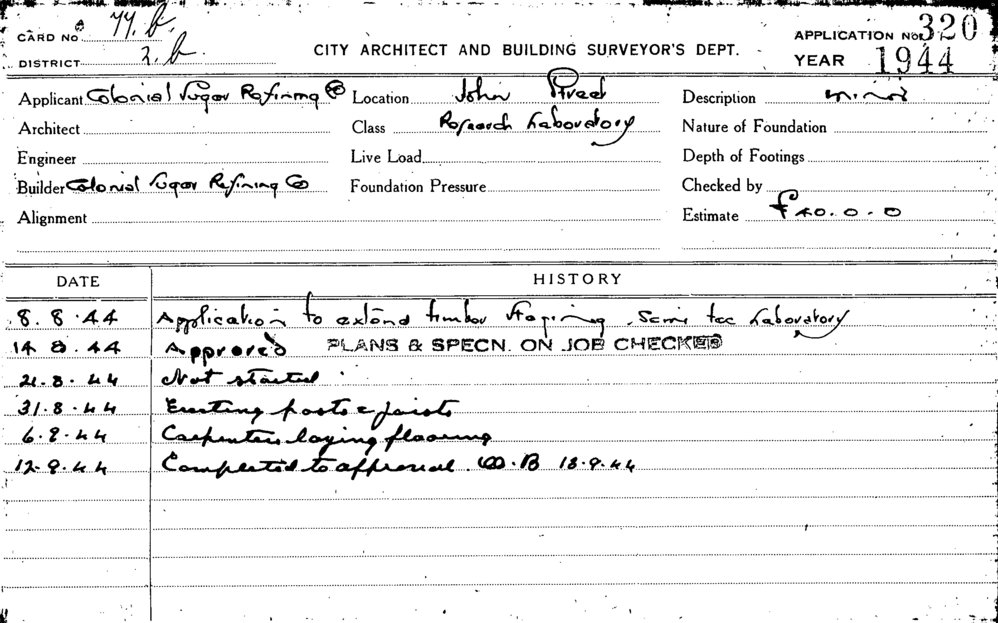 CARD No 77.b. APPLICATION No. 320
DISTRICT 2.b. CITY ARCHITECT AND BUILDING SURVEYOR'S DEPT. YEAR 1944
Applicant Colonial Sugar Refining Co Location John Street Description minor
Architect Class Research Laboratory Nature of Foundation
Engineer Live Load Depth of Footings
Builder Colonial Sugar Refining Co Foundation Pressure Checked by
Alignment Estimate £40.0.0
DATE HISTORY
8.8.44 Application to extend timber staging Semi tec Laboratory
14 8.44 Approved PLANS & SPECN. ON JOB CHECKED
21.8.44 Not started
31.8.44 Erecting posts & joists
6.9.44 Carpenters laying flooring
12.9.44 Completed to approval. 13.9.44